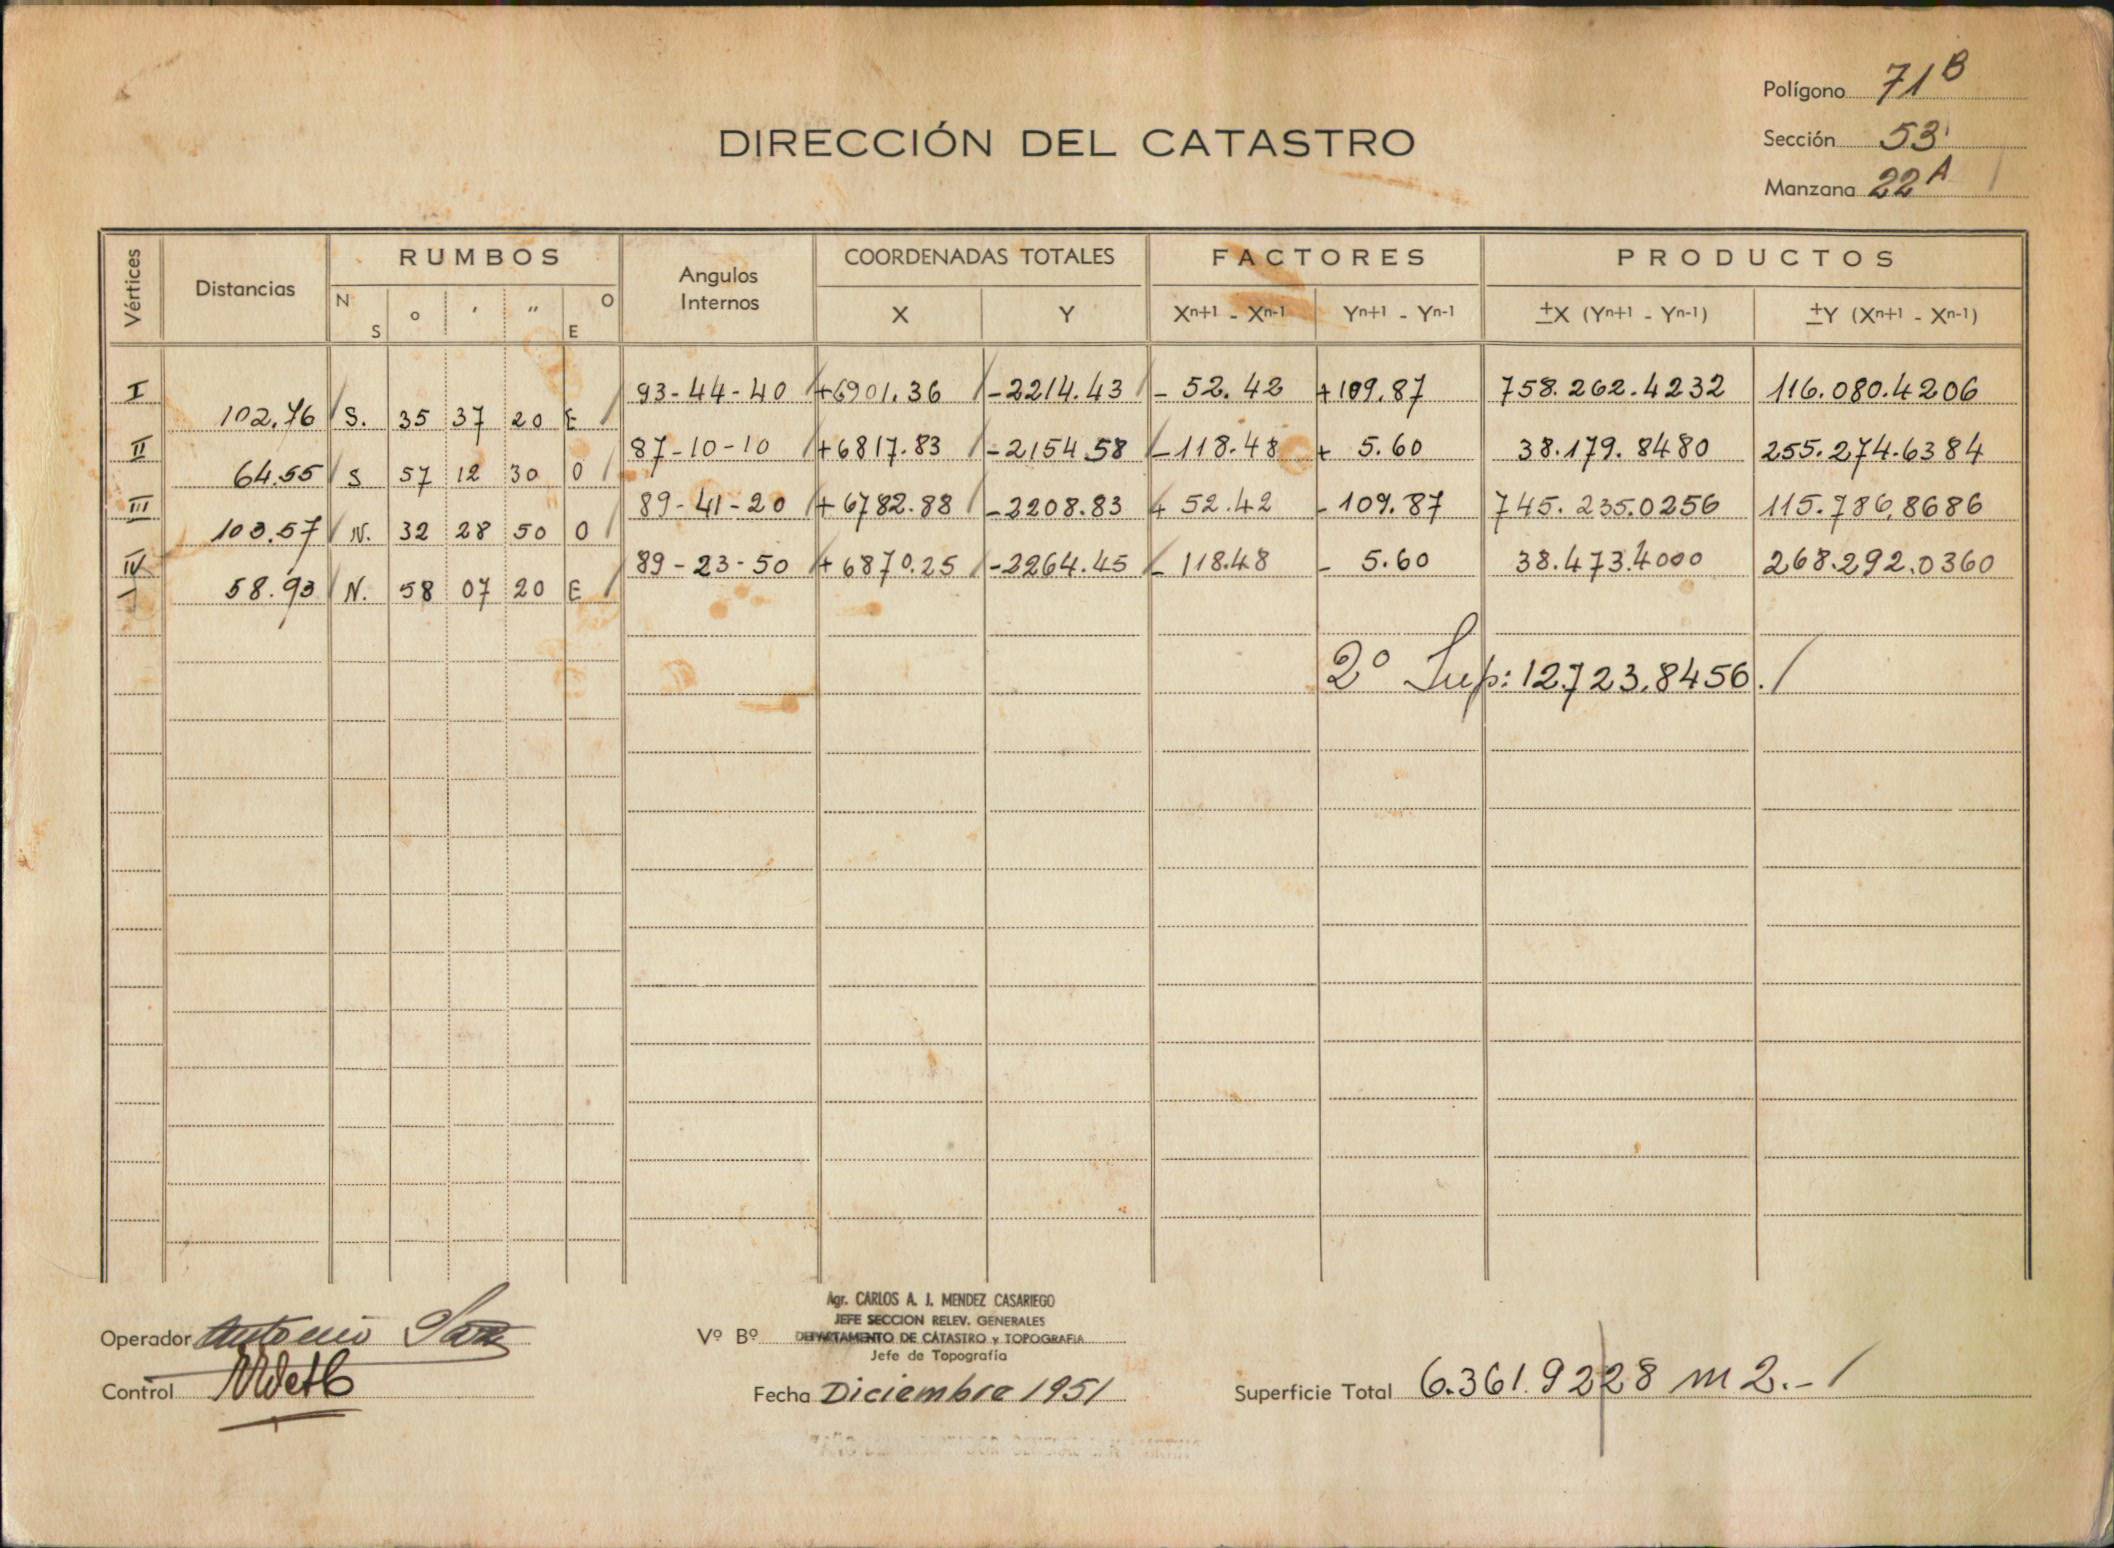 Polígono 71 B
DIRECCIÓN DEL CATASTRO
Sección 53
Manzana 22 A
Vértices Distancias RUMBOS Angulos Internos COORDENADAS TOTALES FACTORES PRODUCTOS
N S o ' " E O X Y Xn+1 - Xn-1 Yn+1 - Yn-1 ±X (Yn+1 - Yn-1) ±Y (Xn+1 - Xn-1)
I 93-44-40 +6901.36 -2214.43 - 52.42 +109.87 758.262.4232 116.080.4206
102.76 S. 35 37 20 E
II 87-10-10 +6817.83 -2154.58 -118.48 + 5.60 38.179.8480 255.274.6384
64.55 S 57 12 30 O
III 89-41-20 +6782.88 -2208.83 + 52.42 - 109.87 745.235.0256 115.786.8686
103.57 N. 32 28 50 O
IV 89-23-50 +6870.25 -2264.45 - 118.48 - 5.60 38.473.4000 268.292.0360
I 58.93 N. 58 07 20 E
2º Sup: 12.723,8456.
Agr. CARLOS A. J. MENDEZ CASARIEGO
JEFE SECCION RELEV. GENERALES
Operador Antonio Vº Bº DEPARTAMENTO DE CATASTRO y TOPOGRAFIA
Jefe de Topografía
Control Fecha Diciembre 1951 Superficie Total 6.361.9228 m2.-